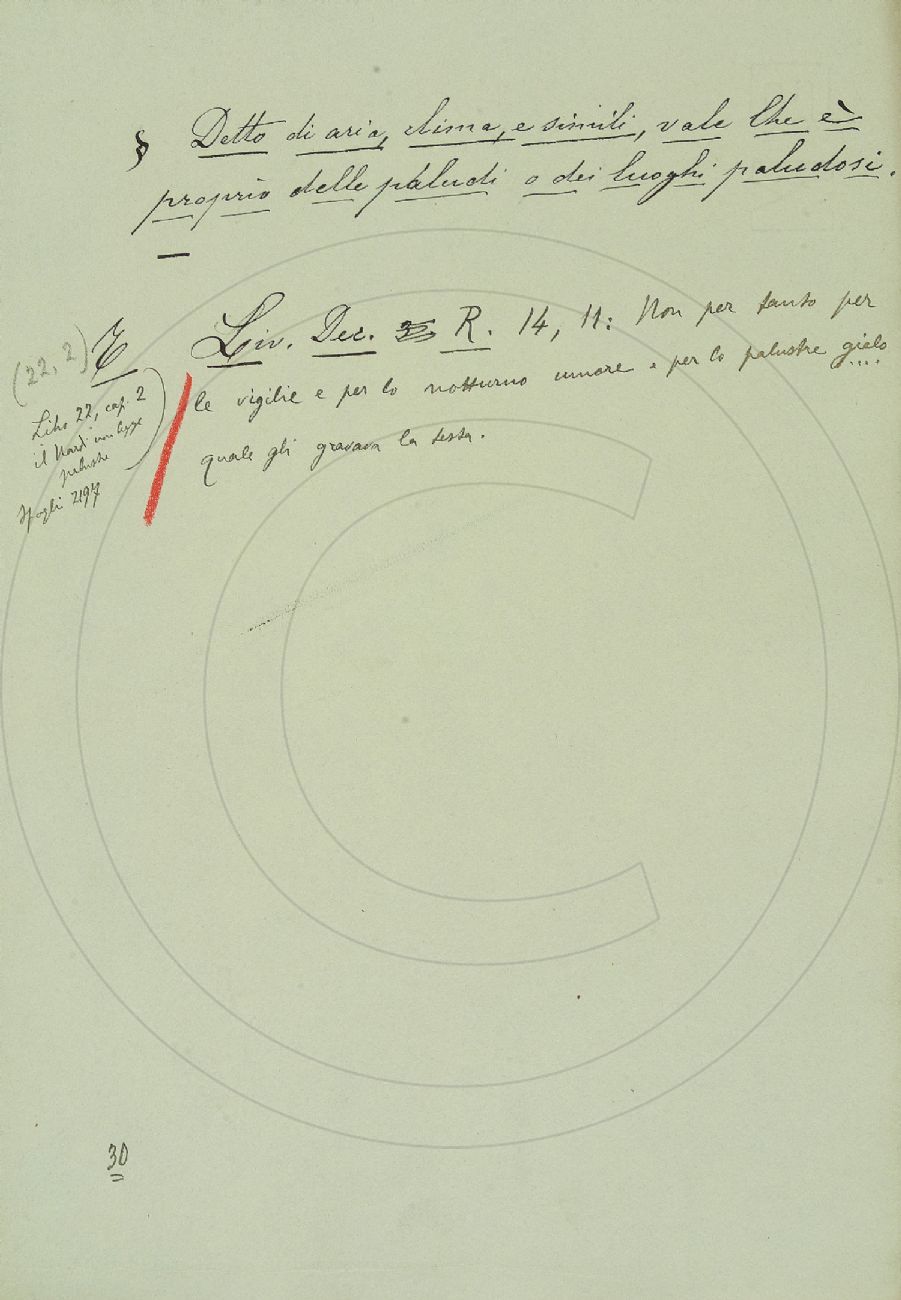 § Detto di aria, clima, e simili, vale Che è
proprio delle paludi o dei luoghi paludosi.
—
(22, 2)
Liv. Dec. R. 14, 11: Non per tanto per
le vigilie e per lo notturno umore e per lo palustre gielo
quale gli gravava la testa.
Libro 22, cap. 2
il Nardi non legge
palustre
Spogli 2197
30